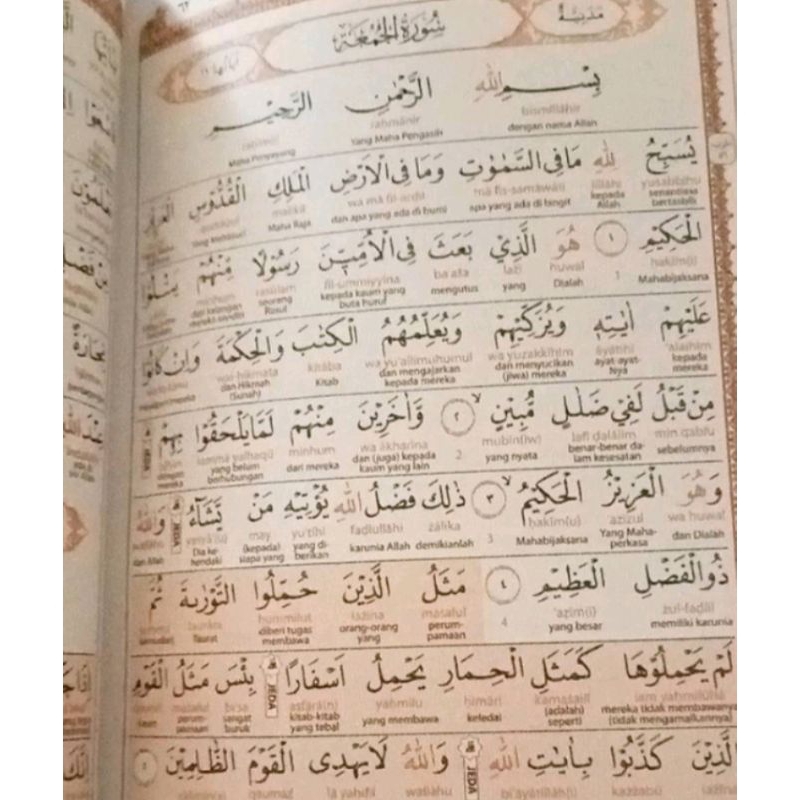 مدنية سورة الجمعة
بِسْمِ اللهِ الرَّحْمٰنِ الرَّحِيْمِ
bismillāhir raḥmānir raḥīm(i)
dengan nama Allah Yang Maha Pengasih Maha Penyayang
يُسَبِّحُ لِلّٰهِ مَا فِى السَّمٰوٰتِ وَمَا فِى الْاَرْضِ الْمَلِكِ الْقُدُّوْسِ
yusabbiḥu lillāhi mā fis-samāwāti wa mā fil-arḍil malikil
senantiasa bertasbih kepada Allah apa yang ada di langit dan apa yang ada di bumi Maha Raja
الْحَكِيْمِ ١ هُوَ الَّذِيْ بَعَثَ فِى الْاُمِّيّٖنَ رَسُوْلًا مِّنْهُمْ يَتْلُوْا
ḥakīm(i) 1 huwal lażī ba'aṡa fil-ummiyyina rasūlam minhum
Mahabijaksana Dialah yang mengutus kepada kaum yang buta huruf seorang Rasul dari kalangan mereka sendiri
عَلَيْهِمْ اٰيٰتِهٖ وَيُزَكِّيْهِمْ وَيُعَلِّمُهُمُ الْكِتٰبَ وَالْحِكْمَةَ وَاِنْ كَانُوْا
'alaihim āyātihī wa yuzakkīhim wa yu'allimuhumul kitāba wal-ḥikmata
kepada mereka ayat-ayat-Nya dan menyucikan (jiwa) mereka dan mengajarkan kepada mereka Kitab dan Hikmah (Sunah)
مِنْ قَبْلُ لَفِيْ ضَلٰلٍ مُّبِيْنٍ ٢ وَّاٰخَرِيْنَ مِنْهُمْ لَمَّا يَلْحَقُوْا بِهِمْ JEDA
min qablu lafī ḍalālim mubīn(iw) 2 wa ākharīna minhum lammā yalḥaqū
sebelumnya benar-benar dalam kesesatan yang nyata dan (juga) kepada kaum yang lain dari mereka yang belum berhubungan dengan mereka
وَهُوَ الْعَزِيْزُ الْحَكِيْمُ ٣ ذٰلِكَ فَضْلُ اللهِ يُؤْتِيْهِ مَنْ يَّشَاۤءُ JEDA وَاللهُ
wa huwal 'azīzul ḥakīm(u) 3 żālika faḍlullāhi yu'tīhi may
dan Dialah Yang Maha-perkasa Mahabijaksana demikianlah karunia Allah yang di-berikan (kepada) siapa yang Dia ke-hendaki dan Allah
ذُو الْفَضْلِ الْعَظِيْمِ ٤ مَثَلُ الَّذِيْنَ حُمِّلُوا التَّوْرٰىةَ ثُمَّ
żul-faḍlil 'aẓīm(i) 4 maṡalul lażīna ḥummilut taurāta
memiliki karunia yang besar perum-pamaan orang-orang yang diberi tugas membawa Taurat
لَمْ يَحْمِلُوْهَا كَمَثَلِ الْحِمَارِ يَحْمِلُ اَسْفَارًا JEDA بِئْسَ مَثَلُ الْقَوْمِ
lam yaḥmilūhā kamaṡalil ḥimāri yaḥmilu asfārā(n) bi'sa maṡalul
mereka tidak membawanya (tidak mengamalkannya) (adalah) seperti keledai yang membawa kitab-kitab yang tebal sangat buruk perum-pamaan kaum
الَّذِيْنَ كَذَّبُوْا بِاٰيٰتِ اللهِ JEDA وَاللهُ لَا يَهْدِى الْقَوْمَ الظّٰلِمِيْنَ
lażīna każżabū bi'āyātillāh(i) wallāhu lā yahdil qaumaẓ